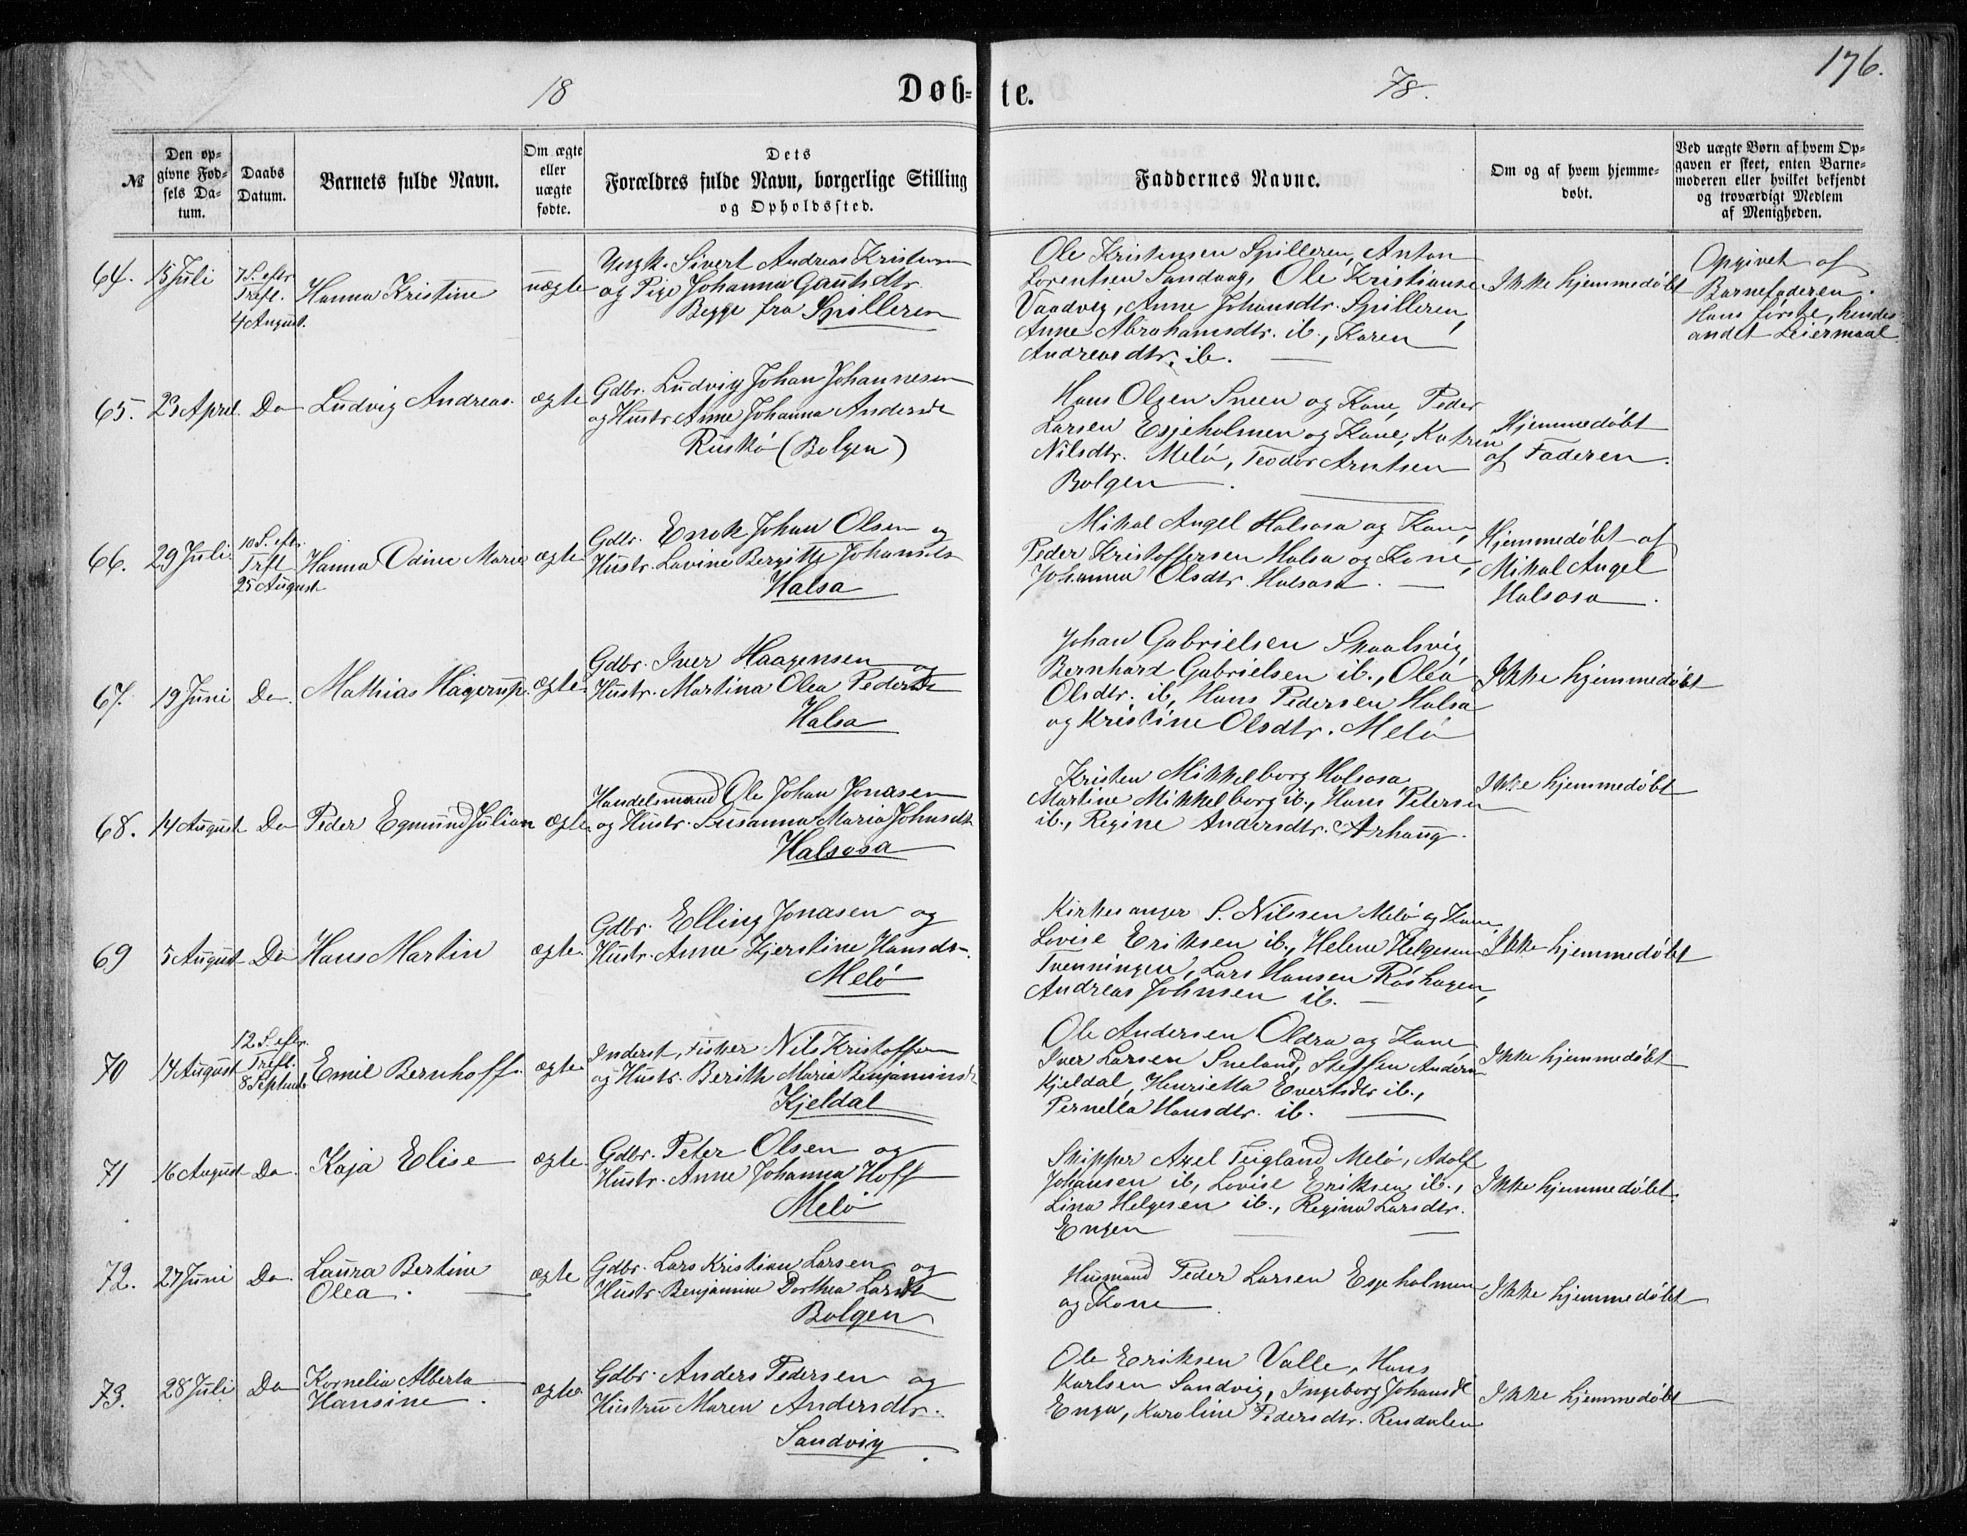 176.
18 Døb-te. 78.
№
Den op-
givne Fød-
sels Da-
tum.
Daabs
Datum.
Barnets fulde Navn.
Om ægte
eller
uægte
fødte.
Dets
Forældres fulde Navn, borgerlige Stilling
og Opholdssted.
Faddernes Navne.
Om og af hvem hjemme-
døbt.
Ved uægte Børn af hvem Op-
gaven er skeet, enten Barne-
moderen eller hvilket bekjendt
og troværdigt Medlem
af Menigheden.
64. 15 Juli
7 S. efter
Trefl.
4 August.
Hanna Kristine
uægte
Ungk. Sivert Andreas Kristensen
og Pige Johanna Gautsdtr.
Begge fra Spilleren
Ole Kristensen Spilleren, Anton
Lorentsen Sandaag, Ole Kristianse
Vaadvig, Anne Johansdtr. Spilleren,
Anne Abrahamsdtr. ib., Karen
Andreasdtr. ib.
Ikke hjemmedøbt
Opgivet af
Barnefaderen.
Hans første, hendes
andet Leiermaal
65. 23 April. Do Ludvig Andreas. ægte
Gdbr. Ludvig Johan Johannesen
og Hustr. Anne Johanna Andersdtr
Ruskø (Bolgen)
Hans Olsen Sneen og Kone, Peder
Larsen Esjeholmen og Kone, Katren
Nilsdtr. Melø, Teodor Arntsen
Bolgen
Hjemmedøbt
af Faderen.
66. 29 Juli
10 S. eftr.
Trfl
25 August
Hanna Odine Marie ægte
Gdbr. Enok Johan Olsen og
Hustr. Lovine Bergitte Johansdtr
Halsa
Mikal Angel Halsosa og Kone,
Peder Kristoffersen Halsa og Kone,
Johanna Olsdtr. Halsosa
Hjemmedøbt af
Mikal Angel
Halsosa
67. 19 Juni Do. Mathias Hagerup. ægte.
Gdbr. Iver Haagensen og
Hustr. Martina Olea Pedersdtr
Halsa
Johan Gabrielsen Skaalsvig,
Bernhard Gabrielsen ib., Olea
Olsdtr. ib., Hans Pedersen Halsa
og Kristine Olsdtr. Melø
Ikke hjemmedøbt
68. 14 August Do Peder Egmund Julian ægte
Handelsmand Ole Johan Jonasen
og Hustr. Susanna Maria Johnsdtr
Halsosa
Kristen Mikkelborg Halsosa,
Martine Mikkelborg ib., Hans Petersen
ib., Regine Andersdtr. Arhaug.
Ikke hjemmedøbt
69 5 August Do Hans Martin ægte
Gdbr. Elling Jonasen og
Hustr. Anne Kjerstine Hansdtr.
Melø
Kirkesanger S. Nilssen Melø og Kone,
Lovise Eriksen ib., Helene Helgesen
Tvenningen, Lars Hansen Røshagen,
Andreas Johnsen ib.
Ikke hjemmedøbt
70 14 August
12 S. eftr.
Trefl.
8 Septembr
Emil Bernhoff. ægte
Inderst, Fisker Nils Kristoffersen
og Hustr. Berith Maria Benjaminsdtr
Kjeldal
Ole Andersen Oldra og Kone
Iver Larsen Sneland, Steffen Andersen
Kjeldal, Henrietta Evertsdtr ib.,
Pernella Hansdtr. ib.
Ikke hjemmedøbt
71 16 August Do. Kaja Elise ægte.
Gdbr. Peter Olsen og
Hustr. Anne Johanna Hoff
Melø
Skipper Axel Teigland Melø, Adolf
Johansen ib, Lovise Eriksen ib.,
Lina Helgesen ib., Regina Larsdtr.
Engen
Ikke hjemmedøbt.
72. 27 Juni Do.
Laura Bertine
Olea.
ægte
Gdbr. Lars Kristian Larsen og
Hustr. Benjamine Dorthea Larsdtr
Bolgen
Husmand Peder Larsen Esjeholmen
og Kone
Ikke hjemmedøbt
73. 28 Juli Do
Kornelia Alberta
Hansine.
ægte
Gdbr. Anders Pedersen og
Hustru Maren Andersdtr.
Sandvig
Ole Eriksen Valle, Hans
Karlsen Sandvig, Ingeborg Johansdtr
Enga, Karoline Pedersdtr. Rendalen
Ikke hjemmedøbt